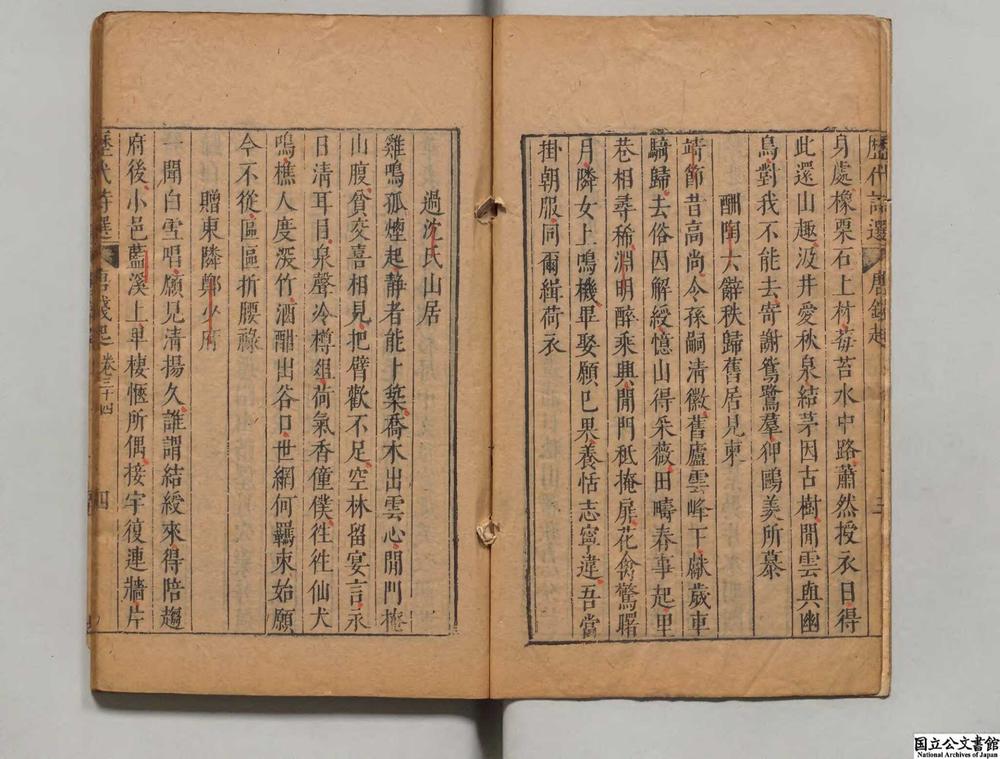 歷代詩選 唐錢起 三
身處橡栗石上村莓苔水中路蕭然授衣日得
此還山趣汲井愛秋泉結茅因古樹閒雲與幽
鳥對我不能去寄謝鴛鷺羣狎鷗美所慕
酬陶六辭秩歸舊居見柬
靖節昔高尚令孫嗣清徽舊廬雲峰下獻歲車
騎歸去俗因解綬憶山得采薇田疇春事起里
巷相尋稀淵明醉乘興閒門秖掩扉花禽驚曙
月隣女上鳴機畢娶願已果養恬志寧違吾當
掛朝服同爾緝荷衣
過沈氏山居
雞鳴孤煙起靜者能卜築喬木出雲心閒門掩
山腹貧交喜相見把臂歡不足空林留宴言永
日清耳目泉聲冷樽俎荷氣香僮僕往往仙犬
鳴樵人度深竹酒酣出谷口世網何羈束始願
今不從區區折腰祿
贈東隣鄭少府
一聞白雪唱願見清揚久誰謂結綬來得陪趨
府後小邑藍溪上卑棲愜所偶接宇復連牆片
歷代詩選 唐錢起 卷三十四 四
国立公文書館
National Archives of Japan